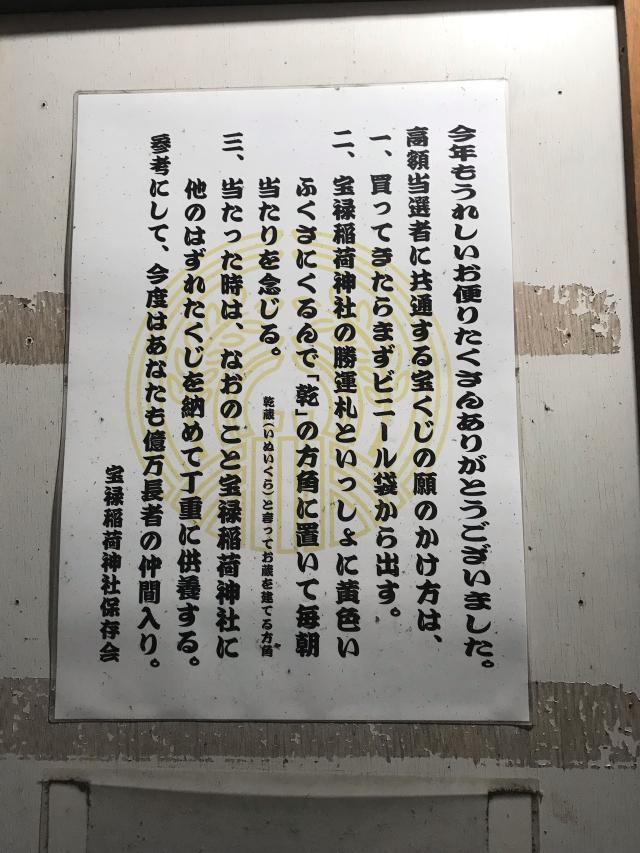 今年もうれしいお便りたくさんありがとうございました。
高額当選者に共通する宝くじの願のかけ方は、
一、買ってきたらまずビニール袋から出す。
二、宝禄稲荷神社の勝運札といっしょに黄色い
ふくさにくるんで「乾」の方角に置いて毎朝
当たりを念じる。
乾蔵(いぬいくら)と言ってお蔵を建てる方角
三、当たった時は、なおのこと宝禄稲荷神社に
他のはずれたくじを納めて丁重に供養する。
参考にして、今度はあなたも億万長者の仲間入り。
宝禄稲荷神社保存会